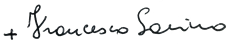 + Francesco Savino